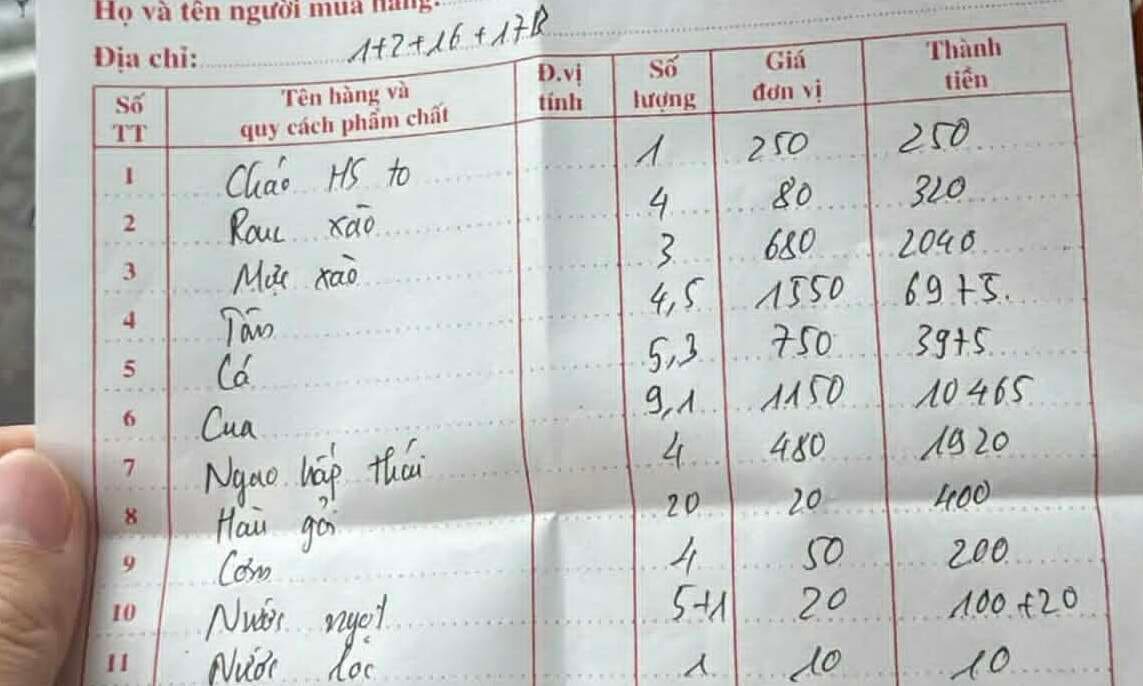 Họ và tên người mua hàng:
Địa chỉ: 1+2+16+17B
Số TT Tên hàng và quy cách phẩm chất Đ.vị tính Số lượng Giá đơn vị Thành tiền
1 Cháo HS to 1 250 250
2 Rau xào 4 80 320
3 Mực xào 3 680 2040
4 Tôm 4,5 1550 6975.
5 Cá 5,3 750 3975
6 Cua 9,1 1150 10465
7 Ngao hấp thái 4 480 1920
8 Hàu gỏi 20 20 400
9 Cơm 4 50 200
10 Nước ngọt 5+1 20 100+20
11 Nước lọc 1 10 10